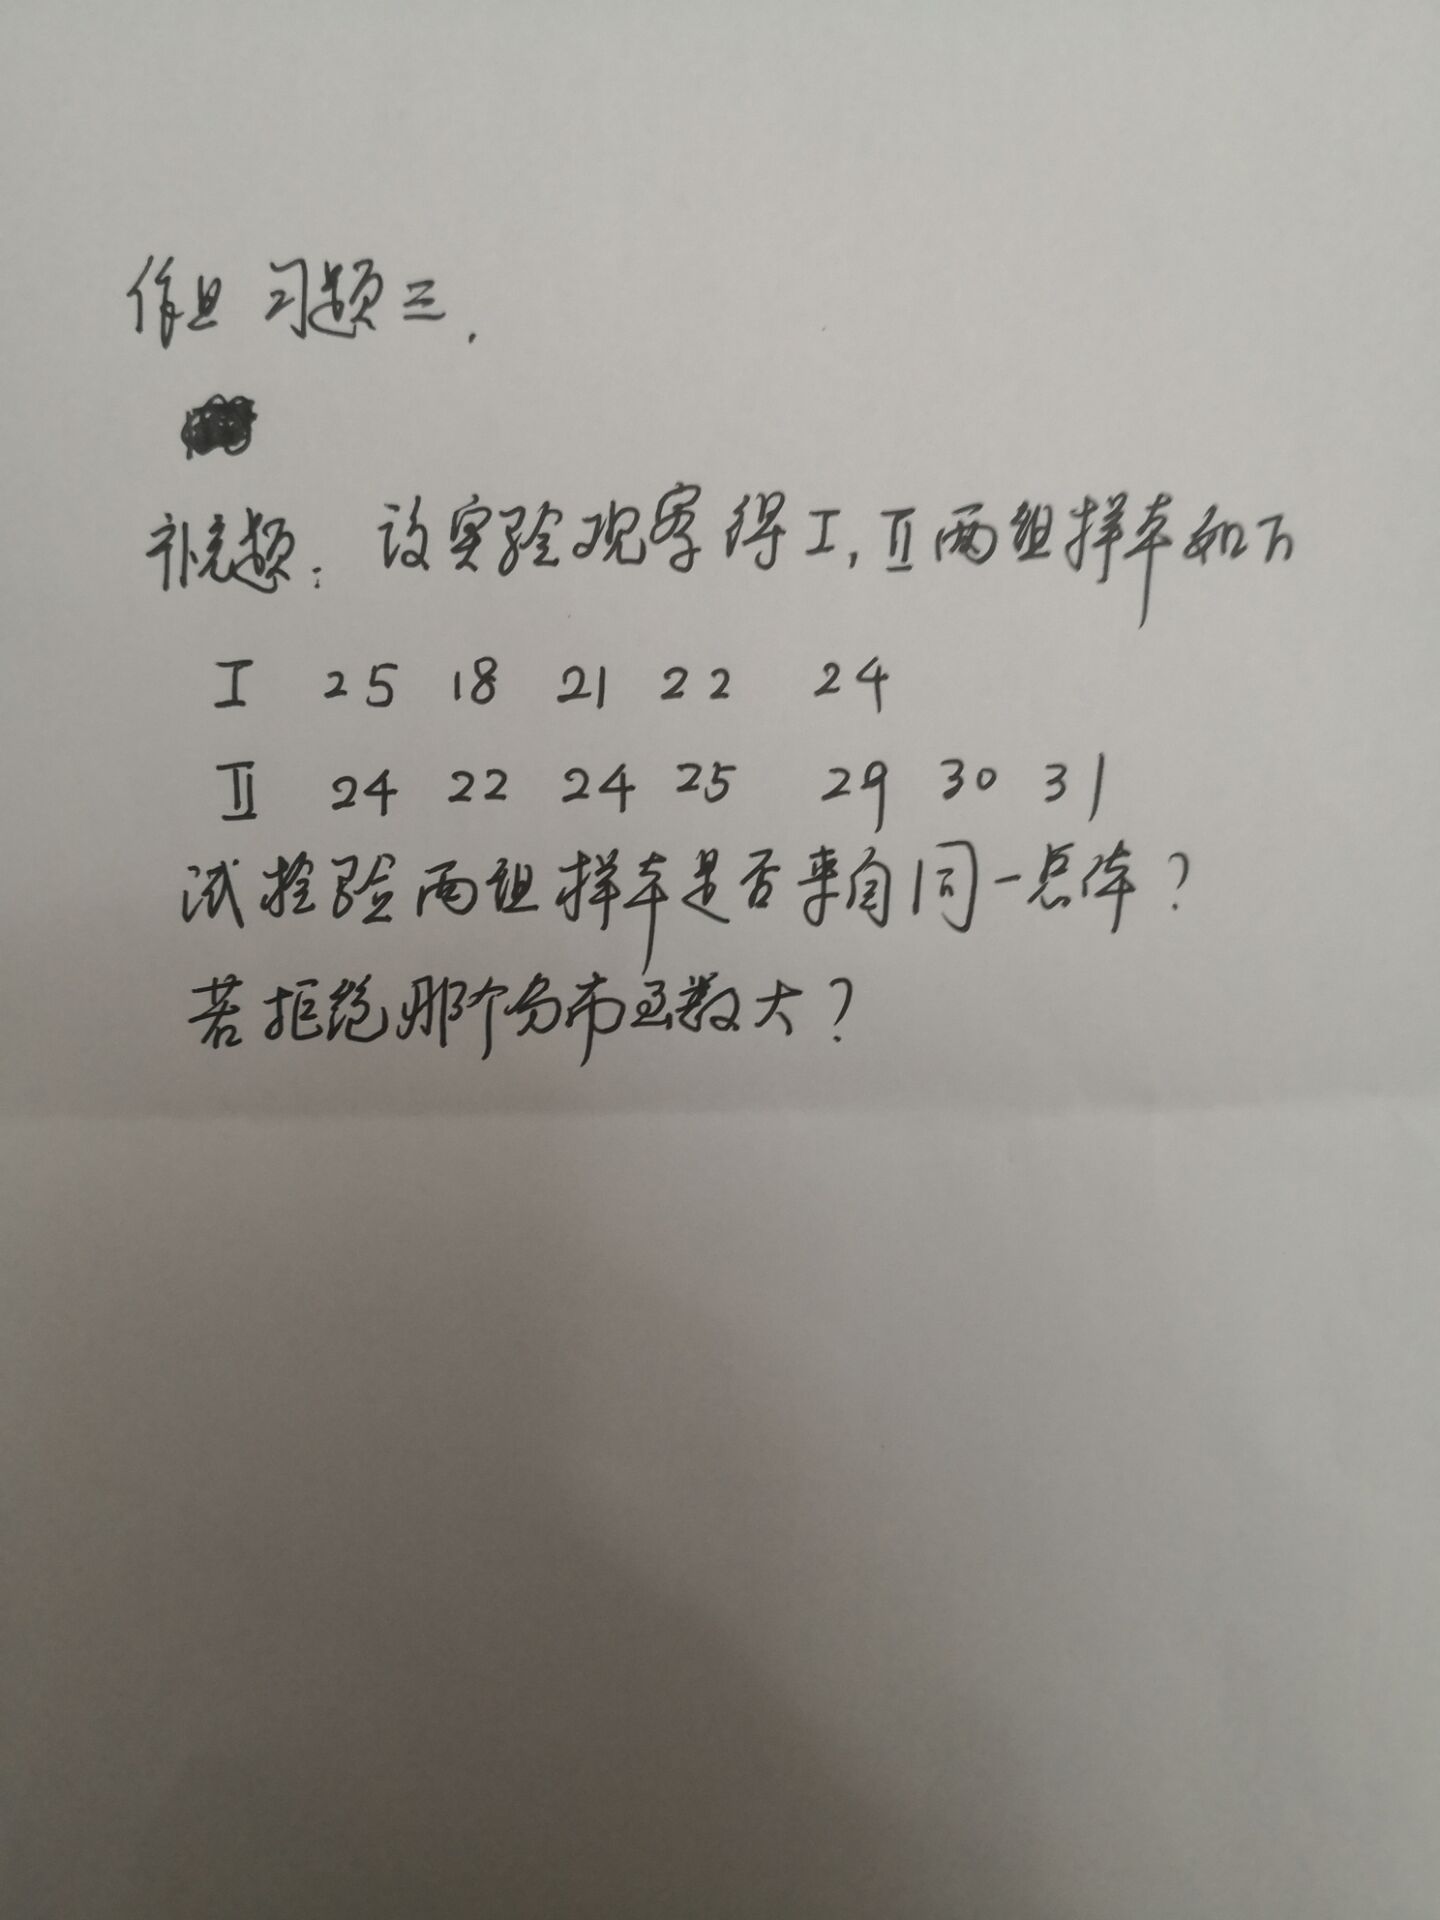 作业 习题三.
补充题: 设实验观察得 I, II 两组样本如下
I 25 18 21 22 24
II 24 22 24 25 29 30 31
试检验两组样本是否来自同一总体?
若拒绝那个分布函数大?